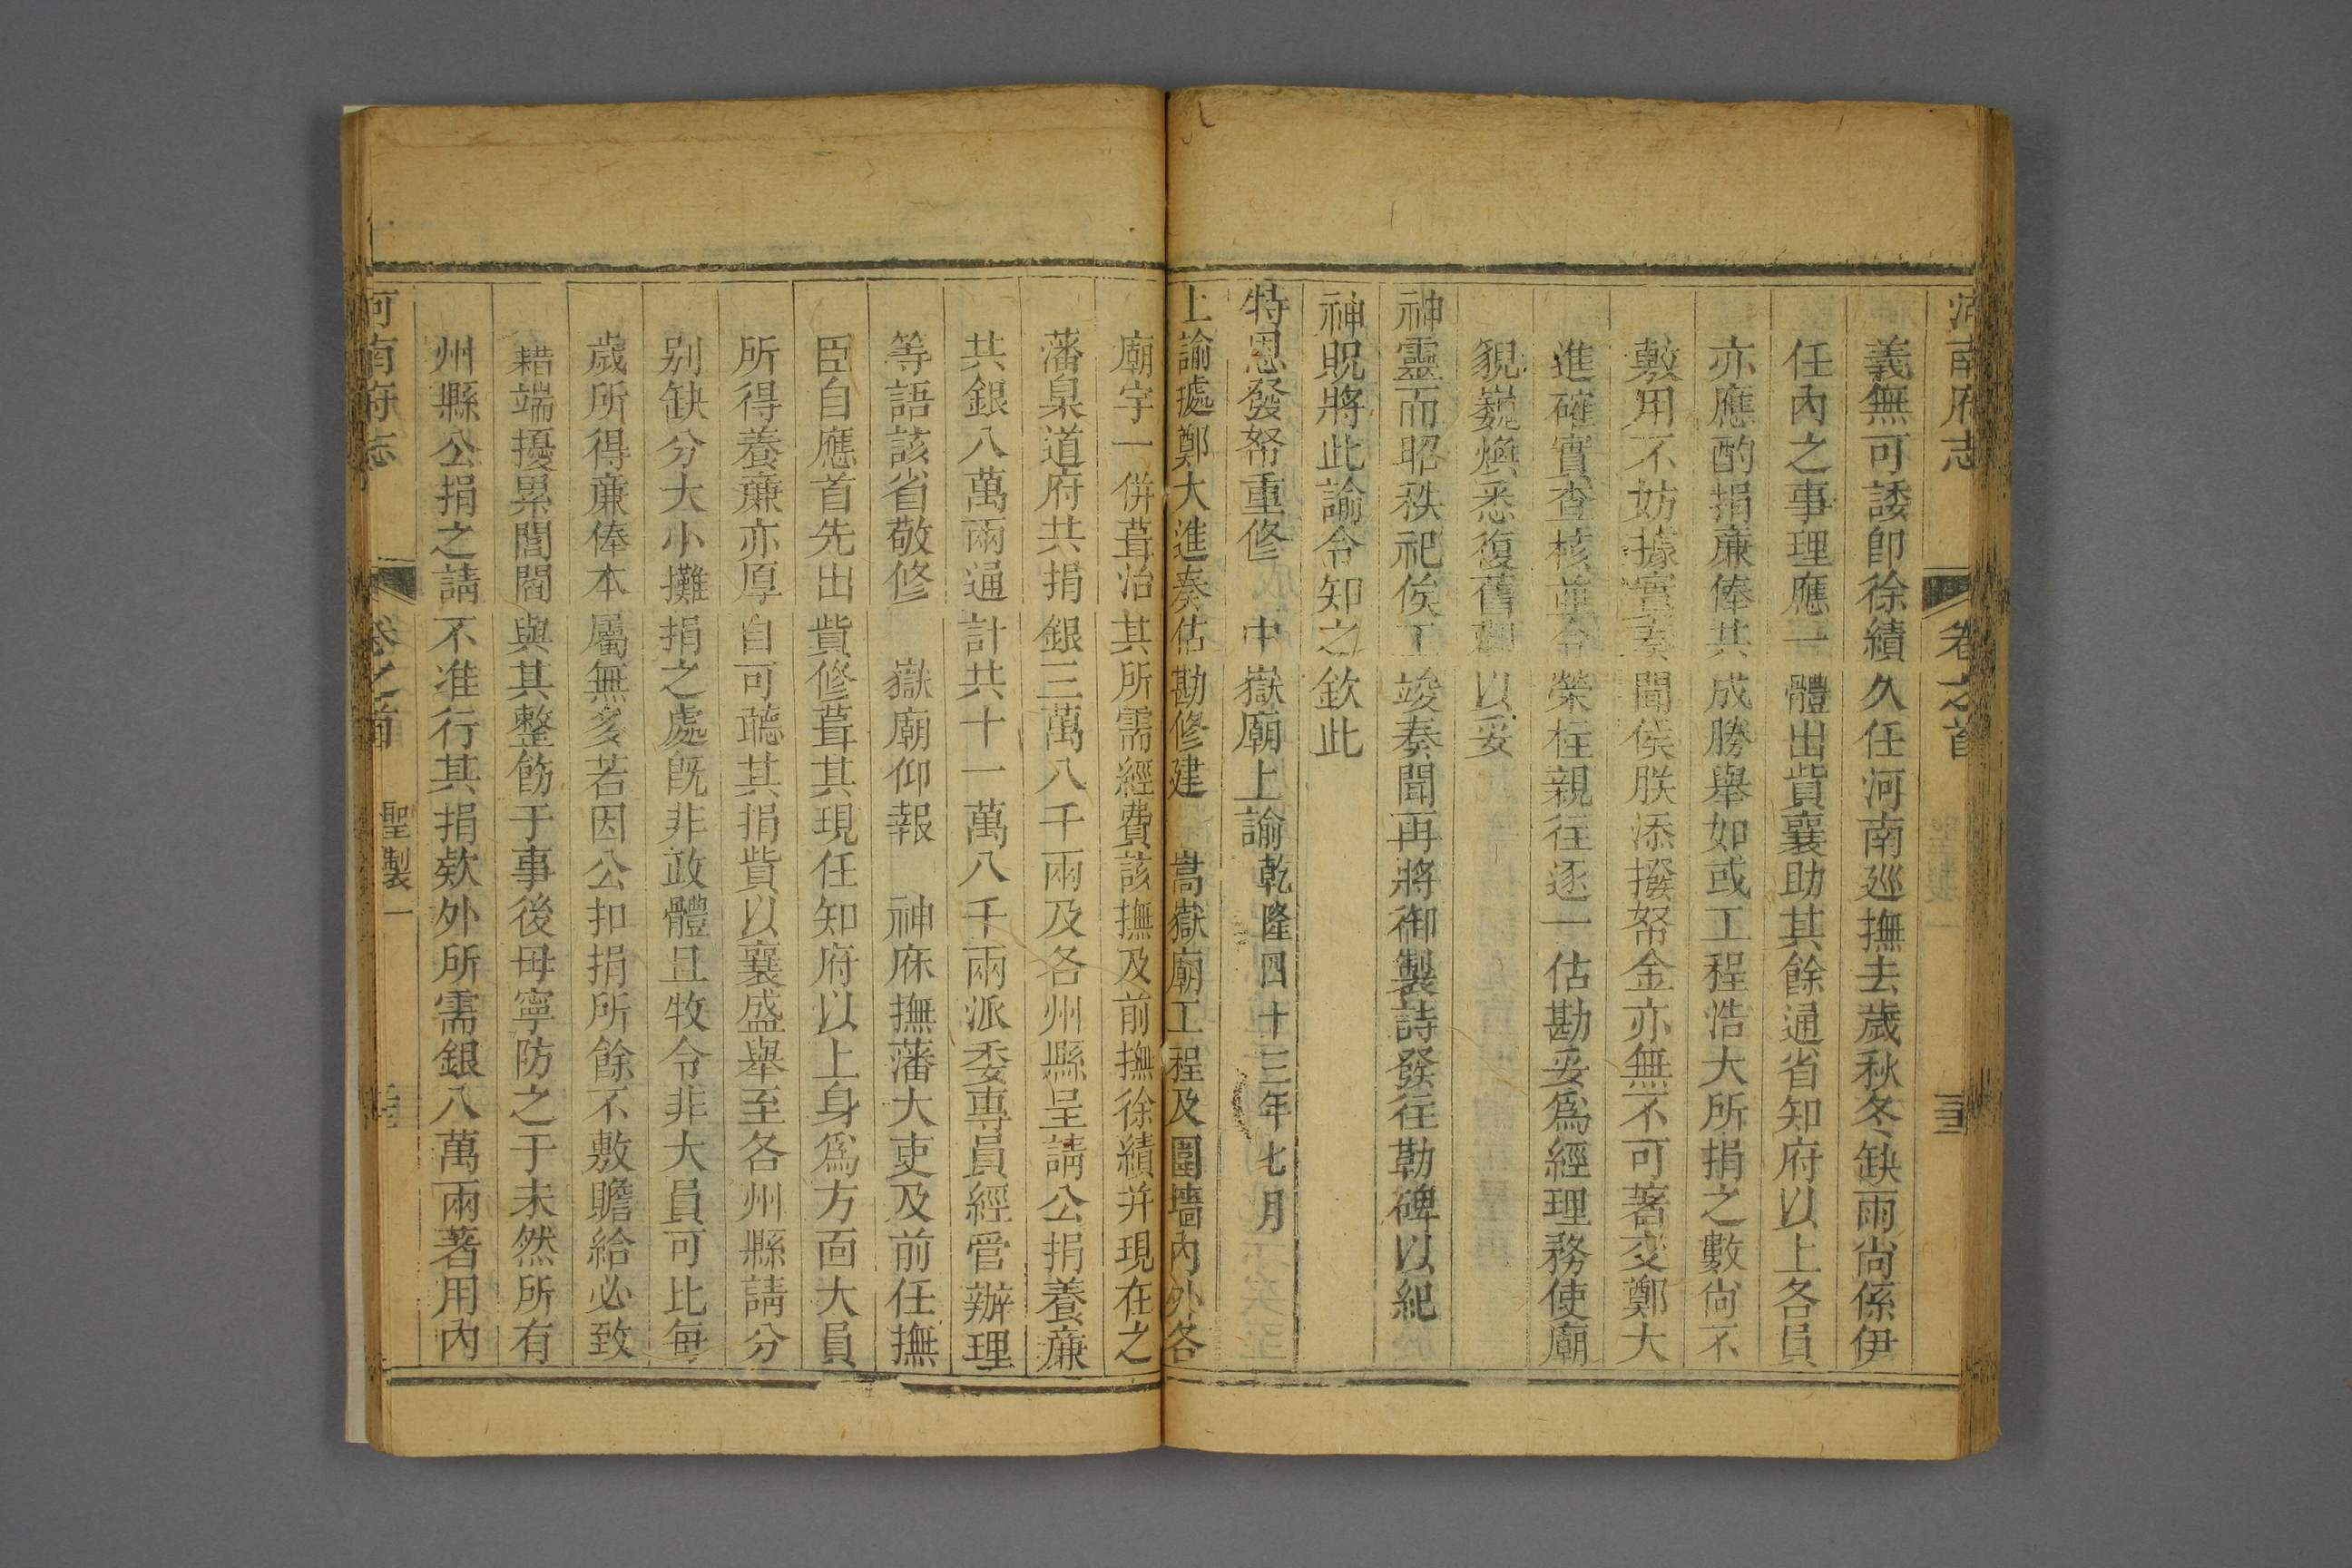 河南府志 卷之首 聖製一
義無可諉卽徐績久任河南巡撫去歲秋冬缺雨尙係伊
任內之事理應一體出貲襄助其餘通省知府以上各員
亦應酌捐廉俸共成勝舉如或工程浩大所捐之數尙不
敷用不妨據實奏聞候朕添撥帑金亦無不可著交鄭大
進確實查核並令榮柱親往逐一估勘妥爲經理務使廟
貌巍煥悉復舊觀以妥
神靈而昭秩祀俟工竣奏聞再將御製詩發往勒碑以紀
神貺將此諭令知之欽此
特恩發帑重修中嶽廟上諭乾隆四十三年七月
上諭據鄭大進奏估勘修建嵩嶽廟工程及圍墻內外各
廟宇一併葺治其所需經費該撫及前撫徐績并現在之
藩臬道府共捐銀三萬八千兩及各州縣呈請公捐養廉
共銀八萬兩通計共十一萬八千兩派委專員經管辦理
等語該省敬修嶽廟仰報神庥撫藩大吏及前任撫
臣自應首先出貲修葺其現任知府以上身爲方面大員
所得養廉亦厚自可聽其捐貲以襄盛舉至各州縣請分
别缺分大小攤捐之處旣非政體且牧令非大員可比每
歲所得廉俸本屬無多若因公扣捐所餘不敷贍給必致
耤端擾累閭閻與其整飭于事後毋寧防之于未然所有
州縣公捐之請不准行其捐欵外所需銀八萬兩著用內
河南府志 卷之首 聖製一